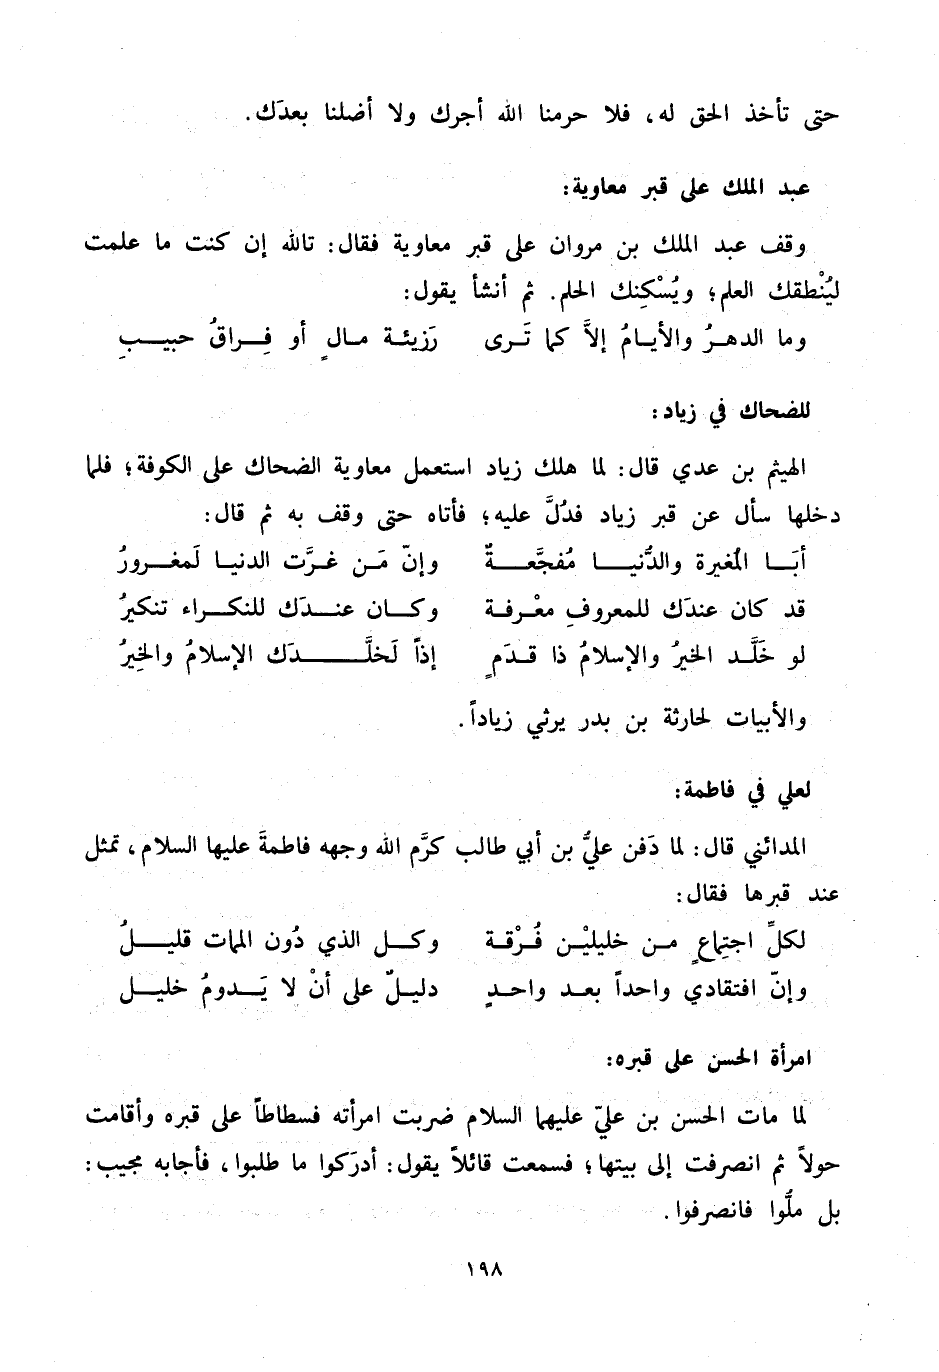 حتى تأخذ الحق له، فلا حرمنا الله أجرك ولا أضلنا بعدَك.
عبد الملك على قبر معاوية:
وقف عبد الملك بن مروان على قبر معاوية فقال: تالله إن كنت ما علمت
ليُنْطقك العلم؛ ويُسْكِنك الحلم. ثم أنشأ يقول:
وما الدهـرُ والأيـامُ إلاَّ كما تَـرى رَزيئـة مـالٍ أو فِـراقُ حبيـبِ
للضحاك في زياد:
الهيثم بن عدي قال: لما هلك زياد استعمل معاوية الضحاك على الكوفة؛ فلما
دخلها سأل عن قبر زياد فدُلَّ عليه؛ فأتاه حتى وقف به ثم قال:
أبَـا المُغيرة والدُّنيـا مُفجَّعـةٌ وإنّ مَـن غـرَّت الدنيـا لَمغـرورُ
قد كان عندَك للمعروفِ معْرفـة وكـان عنـدَك للنكـراء تنكيرُ
لو خَلَّـد الخيرُ والإسلامُ ذا قـدَمٍ إذاً لَخلَّـدَك الإسلامُ والخِيرُ
والأبيات لحارثة بن بدر يرثي زياداً.
لعلي في فاطمة:
المدائني قال: لما دَفن عليُّ بن أبي طالب كرَّم الله وجهه فاطمةَ عليها السلام، تمثل
عند قبرها فقال:
لكلِّ اجتِماعٍ مـن خليليْـن فُـرْقـة وكـل الذي دُون الممات قليـلُ
وإنّ افتقادي واحداً بعـد واحـدٍ دليـلٌ على أنْ لا يَـدومُ خليـل
امرأة الحسن على قبره:
لما مات الحسن بن عليّ عليهما السلام ضربت امرأته فسطاطاً على قبره وأقامت
حولاً ثم انصرفت إلى بيتها؛ فسمعت قائلاً يقول: أدرَكوا ما طلبوا، فأجابه مجيب:
بل ملُّوا فانصرفوا.
١٩٨